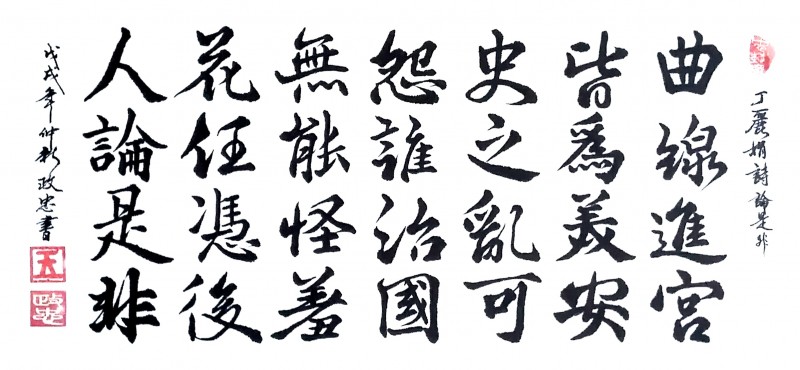 丁麗娟詩論是非
曲線進宮
皆爲美安
史之亂可
怨誰治國
無能怪羞
花任憑後
人論是非
戊戌年仲秋政忠書